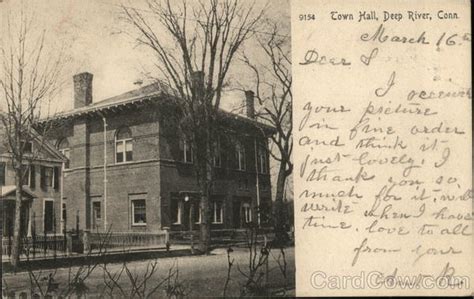 9154 Town Hall, Deep River, Conn.
March 16
Dear
I received
your picture
in fine order
and think it
just lovely. I
thank you so
much for it, will
write when I have
time. love to all
from your
Aunt
CardCow.com